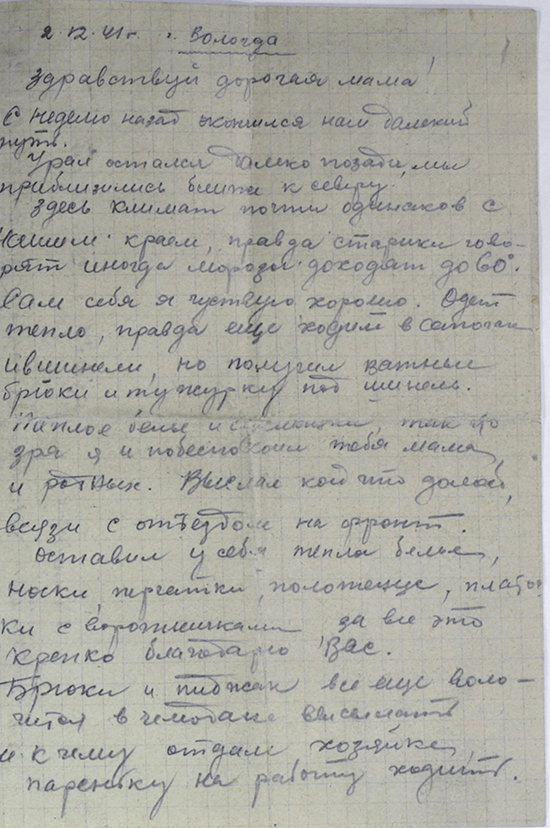 2.12.41 г. г. Вологда
Здравствуй дорогая мама!
С неделю назат окончился наш далекий
путь.
Урал остался далеко позади, мы
приблизились ближе к северу.
Здесь климат почти одинаков с
нашим краем, правда старики гово-
рят иногда морозы доходят до 60°.
Сам себя я чуствую хорошо. Одет
тепло, правда еще ходим в сапогах
и в шинели, но получил ватные
брюки и тужурку под шинель.
Теплое белье и так что
зря я и побеспокоил тебя мама
и родных. Выслал кой что домой,
всвязи с отъездом на фронт.
Оставил у себя тепло белье,
носки, перчатки, полотенце, платоч-
ки с воротничками за все это
крепко благодарю Вас.
Брюки и пиджак все еще воло-
чится в чемодане высылать
не к чему отдам хозяйке,
пареньку на работу ходить.